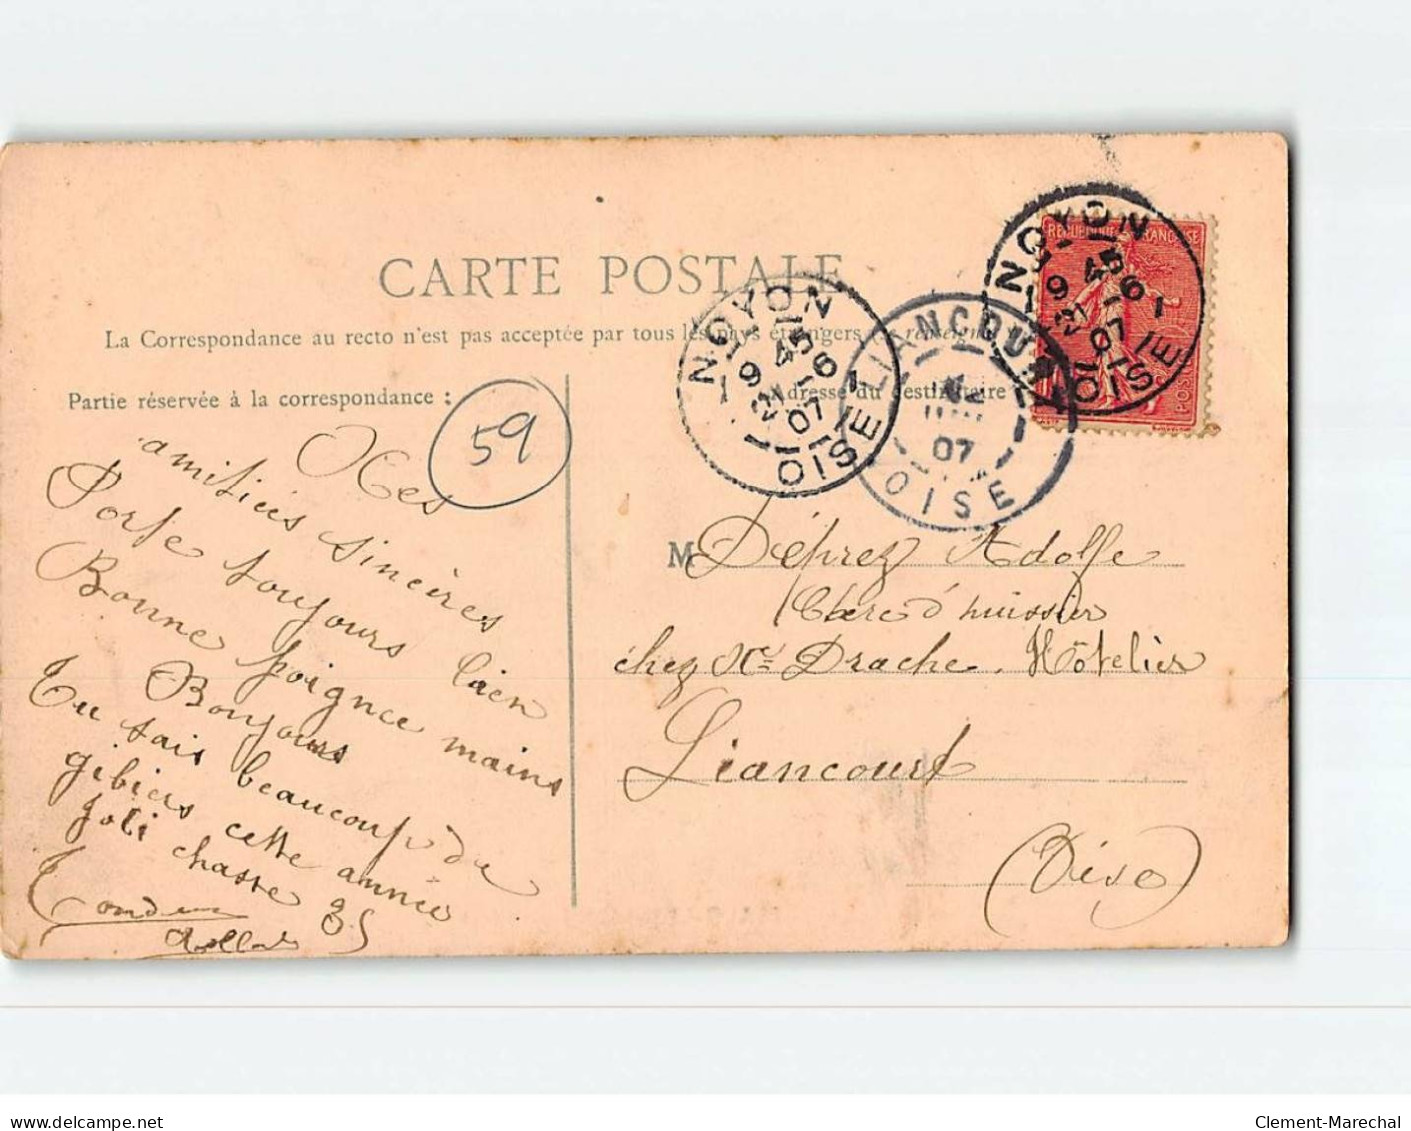 CARTE POSTALE
La Correspondance au recto n'est pas acceptée par tous les pays étrangers
Partie réservée à la correspondance :
Adresse du destinataire
59
NOYON
9 45
21 -6
07
OISE
LIANCOURT
07
OISE
NOYON
9 45
21 -6
07
OISE
REPUBLIQUE FRANÇAISE
POSTES
Mes
amitiés sincères
Porte toujours bien
Bonne poignee mains
Bonjours
Tu sais beaucoup du
gibiers cette année
Joli chasse
M Déprez Adolfe
Clerc d'huissier
chez Me Drache. Hôtelier
Liancourt
(Oise)
delcampe.net
Clement-Marechal